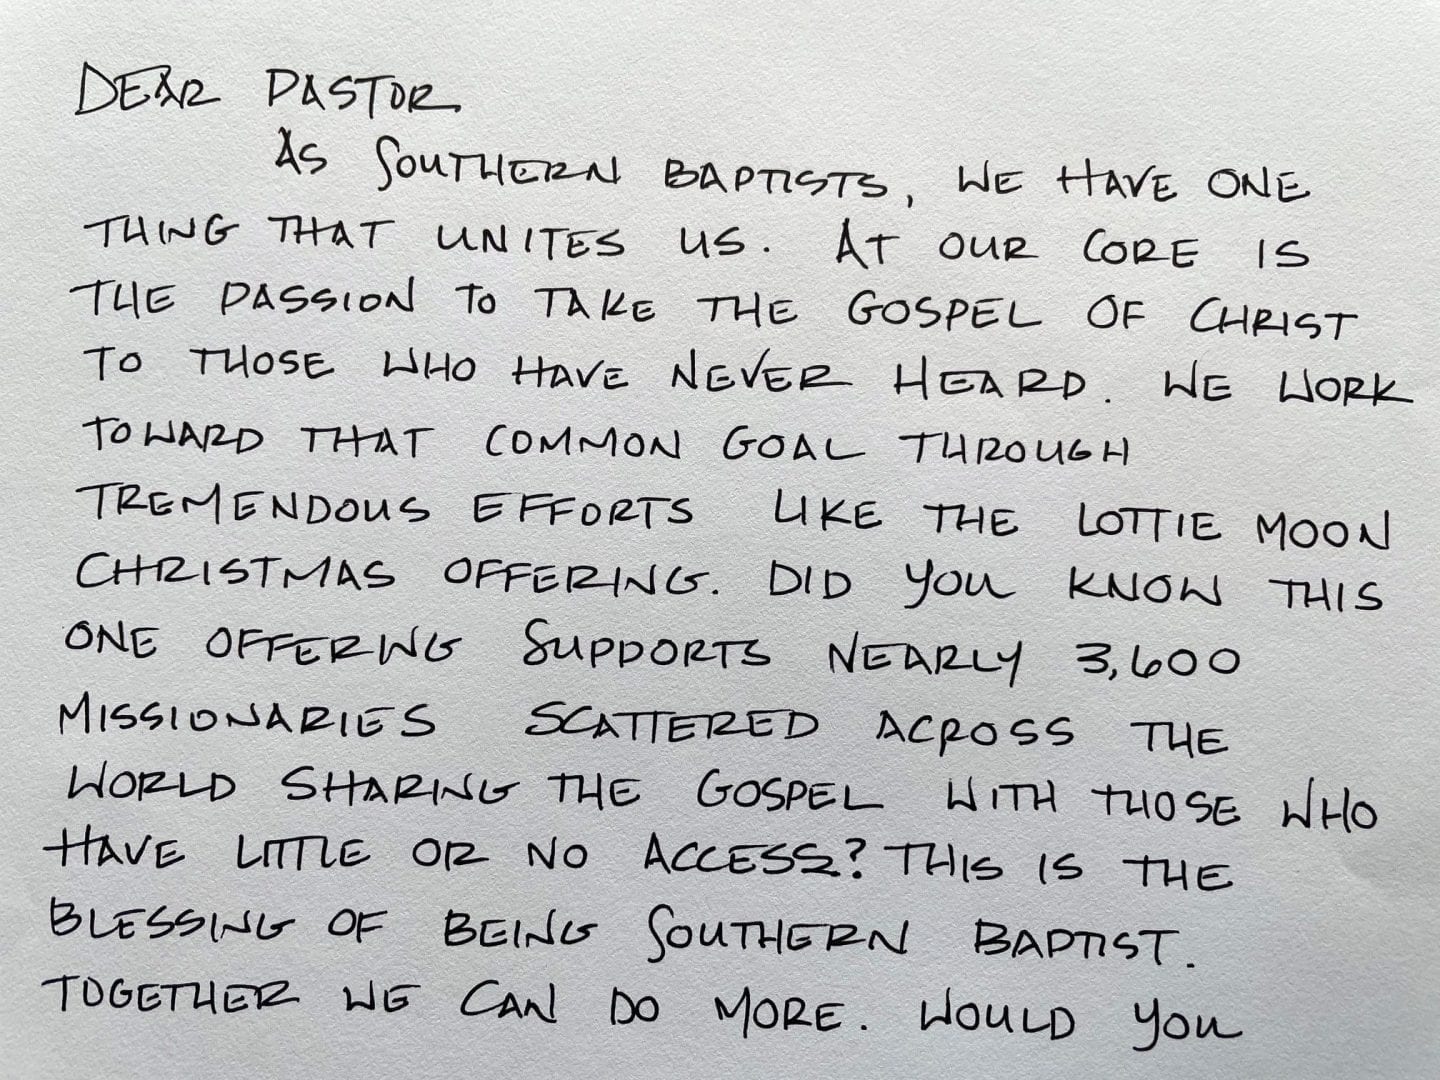 DEAR PASTOR
AS SOUTHERN BAPTISTS, WE HAVE ONE
THING THAT UNITES US. AT OUR CORE IS
THE PASSION TO TAKE THE GOSPEL OF CHRIST
TO THOSE WHO HAVE NEVER HEARD. WE WORK
TOWARD THAT COMMON GOAL THROUGH
TREMENDOUS EFFORTS LIKE THE LOTTIE MOON
CHRISTMAS OFFERING. DID YOU KNOW THIS
ONE OFFERING SUPPORTS NEARLY 3,600
MISSIONARIES SCATTERED ACROSS THE
WORLD SHARING THE GOSPEL WITH THOSE WHO
HAVE LITTLE OR NO ACCESS? THIS IS THE
BLESSING OF BEING SOUTHERN BAPTIST.
TOGETHER WE CAN DO MORE. WOULD YOU